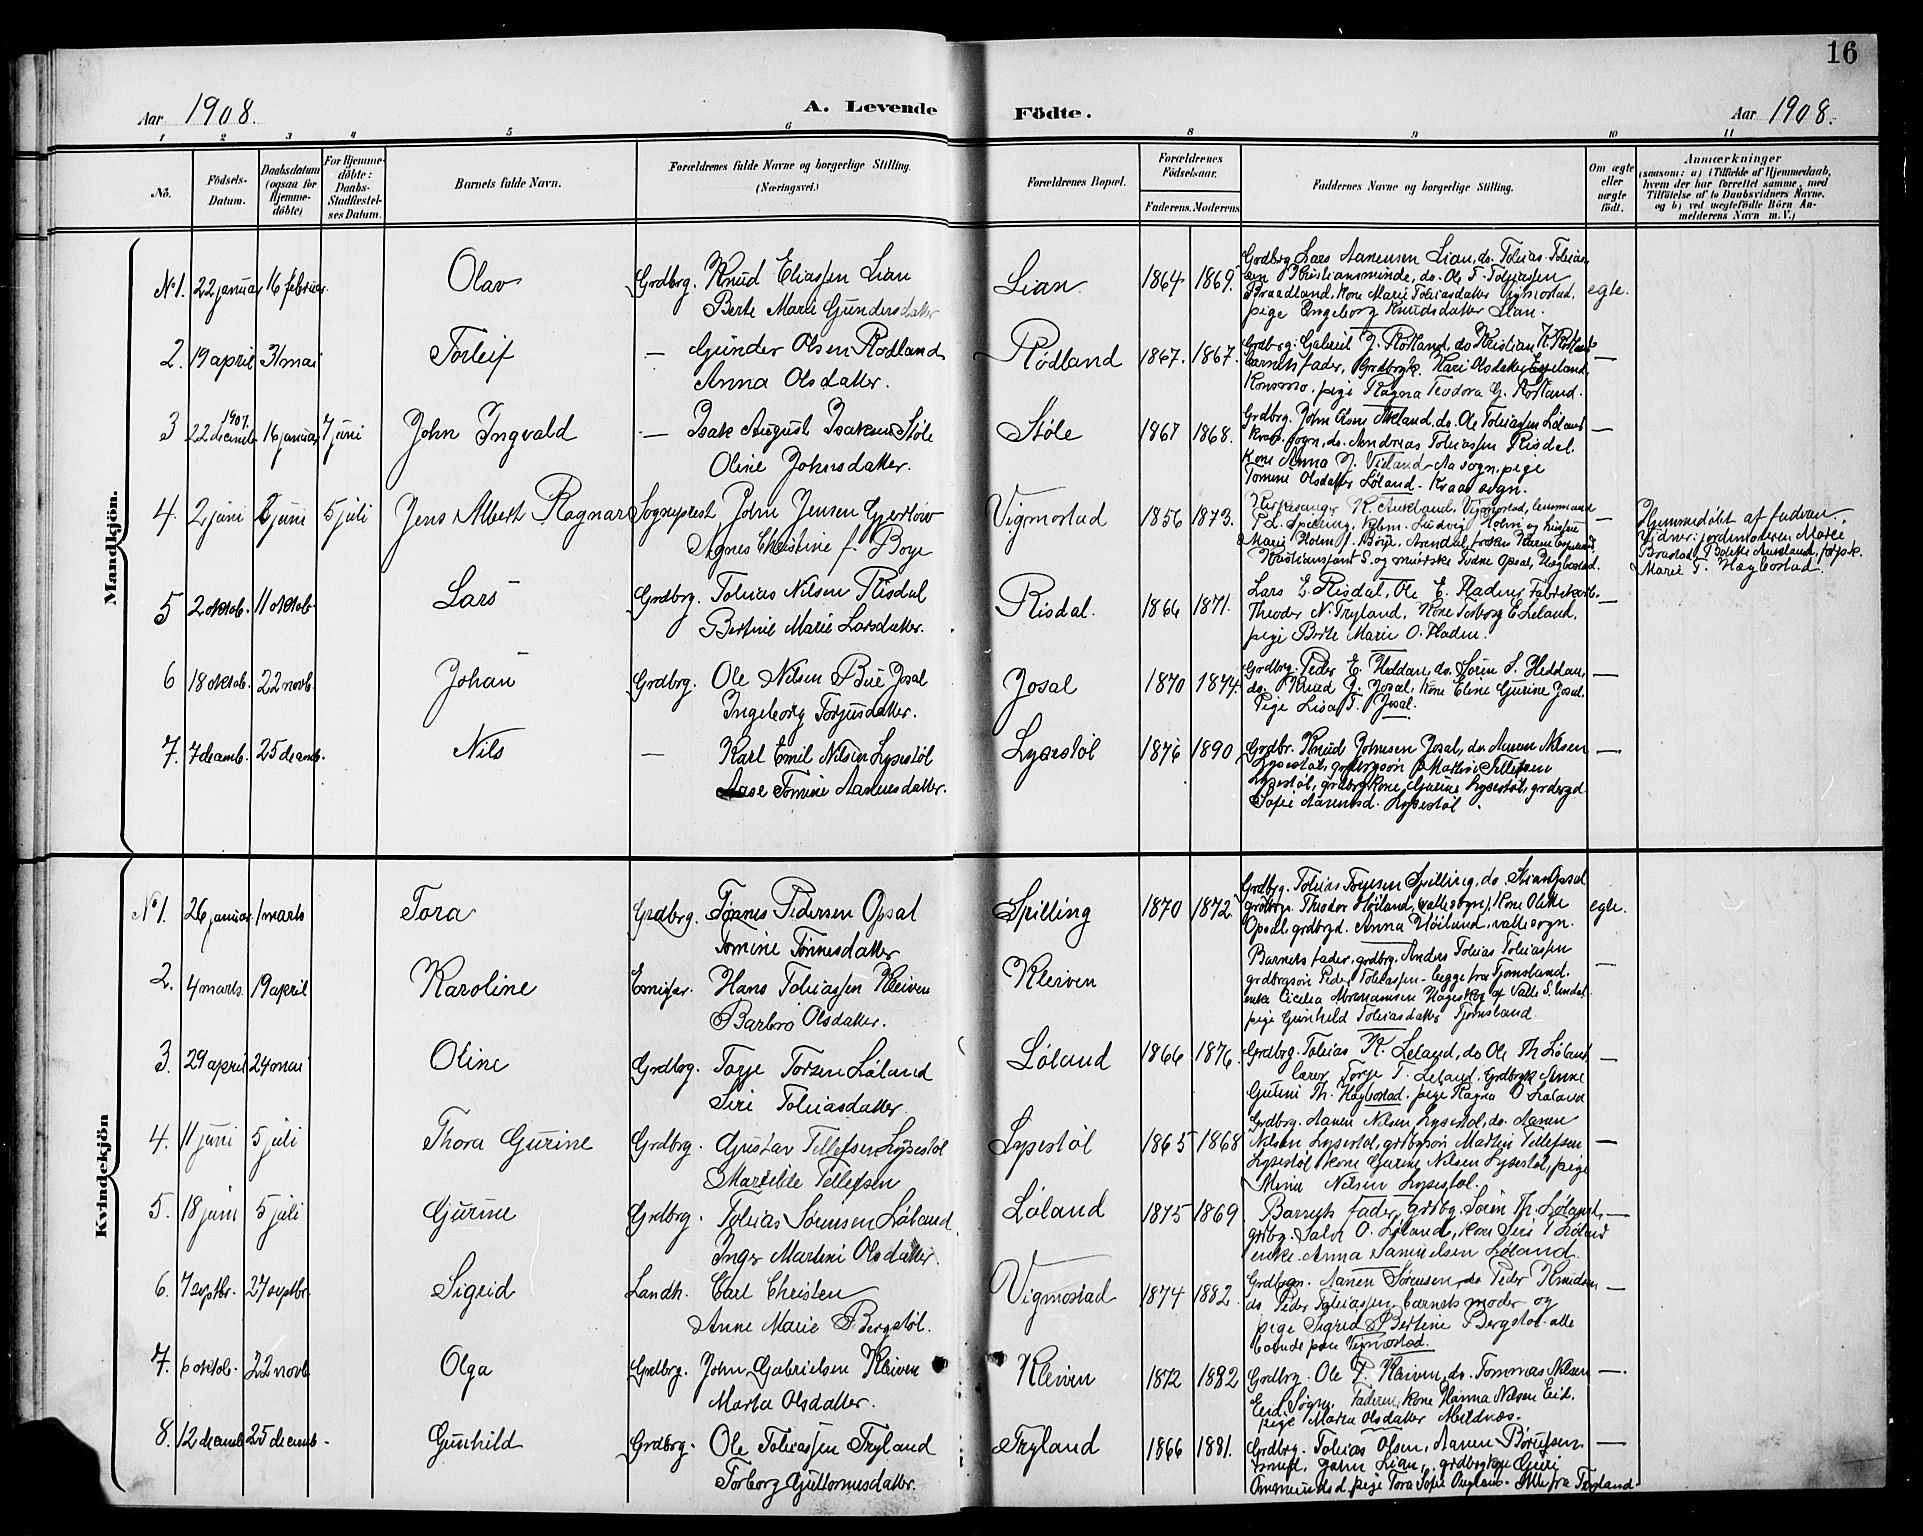 16
Aar 1908.
A. Levende
Födte.
Aar 1908.
1 2 3 4 5 6 8 9 10 11
No.
Födsels-Datum.
Daabsdatum (ogsaa for Hjemme-döbte)
For Hjemme-döbte: Daabs-Stadfæstel-ses Datum.
Barnets fulde Navn.
Forældrenes fulde Navne og borgerlige Stilling. (Næringsvei.)
Forældrenes Bopæl.
Forældrenes Födselsaar.
Faderens. Moderens.
Faddernes Navne og borgerlige Stilling.
Om ægte eller uægte födt.
Anmærkninger
(saasom: a) i Tilfælde af Hjemmedaab, hvem der har forrettet samme, med Tilföielse af to Daabsvidners Navne, og b) ved uægtefödte Börn An-melderens Navn m. V.)
Mandkjön.
No 1. 22 januar 16 februar. Olav Grdbrg. Knud Eliassen Lian
Berte Marie Gundersdatter
Lian 1864 1869. Grdbrg Lars Aanensen Lian, do. Tobias Tobias-
sen Kristiansminde, do. Ole T. Tobiassen
Braadland, Kone Marie Tobiasdatter Vigmostad,
pige Ingeborg Knudsdatter Lian.
egte.
2. 19 april 31 mai Torleif — Gunder Olsen Rødland
Anna Olsdatter.
Rødland 1867. 1867. Grdbrg. Gabriel J. Rødland, do Kristian K. Rødland
barnets fader, Grdbrgk. Kari Olsdatter
Konsmo, pige Ragna Teodora G. Rødland. —
3 22 decemb. 1907. 16 januar 7 juni John Ingvald — Isak August Isaksen Støle
Oline Johnsdatter.
Støle 1867 1868. Grdbrg. John Olsen do. Ole Tobiassen Løland
Kraa sogn, do. Andreas Tobiassen Risdal.
Kone Anna J. Aa sogn, pige
Tomine Olsdatter Løland - Kraa sogn. —
4. 2 juni 2 juni 5 juli Jens Albert Ragnar Sogneprest John Jensen Gjerløw
Agnes Christine f. Boye
Vigmostad 1856 1873. Kirkesanger K. Aukland, Vigmostad, lensmand
P. L. Spilling, Ludvig Holm og hustru
Marie Holm f. Boye, Arendal, frøken
Kristianssand S. og meierske Opsal, Hægbostad. —
Hjemmedøbt af faderen.
Vidner: jordmoderen Marie
Brastad, Bolette Aukland,
Marie T. Hægbostad.
5 2 oktob. 11 oktob. Lars Grdbrg. Tobias Nilsen Risdal
Bertine Marie Larsdatter.
Risdal. 1866 1871. Lars E. Risdal, Ole E. Fladen, Fabrikarb.
Theodor N. Tryland, Kone Torborg E. Leland.
pige Berte Marie O. Fladen. —
6 18 oktob. 22 novb. Johan Grdbrg. Ole Nilsen Bue Josal
Ingeborg Torjusdatter.
Josal 1870 1874 Grdbrg. Peder E. Heddan, do. Søren S. Heddan,
do. Knud J. Josal, Kone Eline Gurine Josal
Pige Lisa T. Josal. —
7. 7 decemb. 25 decemb. Nils — Karl Emil Nilsen Lysestøl
Aase Tomine Aanensdatter.
Lysestøl 1876 1890 Grdbr. Knud Johnsen Josal, do Aanen Nilsen
Lysestøl, grdbrgsøn Martin Tellefsen
Lysestøl, grdbrgkone Gurine Lysestøl, grdbrgd.
Sofie Aanensd. Lysestøl. —
Kvindekjön
No 1. 26 januar 1 marts Tora Grdbrg. Tønnes Pedersen Opsal
Tomine Tønnesdatter
Spilling 1870 1872 Grdbrg. Tobias Spilling, do. Stian Opsal
grdbrgn. Theodor Høiland, (valle sogn), Kone Olene
Opsal, grdbrgd. Anna Høiland, valle sogn.
egte.
2. 4 marts 19 april Karoline Emigr. Hans Tobiassen Kleiven
Barbro Olsdatter.
Kleiven Barnets fader, grdbrg. Anders Tobias Tobiassen
grdbrgsøn Peder Tobiassen - begge fra Tjomsland.
enke Cicelia Abrahamsen af Valle S. Undal
pige Gunhild Tobiasdatter Tjomsland. —
3. 29 april 24 mai Oline Grdbrg. Torje Torsen Løland
Siri Tobiasdatter.
Løland 1866 1876. Grdbrg. Tobias K. Leland, do Ole Th. Løland
lærer Torje T. Leland, Grdbrgk Anne
Gurine Th. Hægbostad, pige Ragna O Løland —
4. 11 juni 5 juli Thora Gurine Grdbrg. Gustav Tellefsen Lysestøl
Mathilde Tellefsen
Lysestøl 1865 1868 Grdbrg. Aanen Nilsen Lysestøl, do. Aanen
Nilsen Lysestøl, grdbgsøn Martin Tellefsen
Lysestøl, kone Gurine Nilsen Lysestøl, pige
Mina Nilsen Lysestøl. —
5. 18 juni 5 juli Gurine Grdbrg. Tobias Sørensen Løland
Inger Martine Olsdatter.
Løland 1875 1869 Barnets fader, grdbg. Søren Th. Løland,
grdbg. Salve O. Løland, kone Siri T Løland
enke Anna Samuelsen Løland. —
6. 7 septbr. 27 septbr. Sigrid Landh. Carl Christen
Anne Marie Bergstøl.
Vigmostad 1874 1882. Grdbrgn. Aanen Sørensen, do Peder Knudsen
do Peder Tobiassen, barnets moder og
pige Sigrid Bertine Bergstøl - alle
boende paa Vigmostad. —
7. 6 oktob. 22 novb. Olga Grdbrg. John Gabrielsen Kleiven
Marta Olsdatter.
Kleiven 1872 1882 Grdbrg. Ole P. Kleiven, do. Tommas Nilsen
Eid, Søgne, Faderen, Kone Hanna Nilsen Eid.
pige Maria Olsdatter —
8. 12 decemb. 25 decemb. Gunhild Grdbrg. Ole Tobiassen Tryland
Torborg Guttormsdatter.
Tryland 1866 1881. Grdbrg. Tobias Olsen, Aanen
John Lian, grdbrgkone Guri
Ommundsd. pige Tora Sofie Alle fra Tryland. —